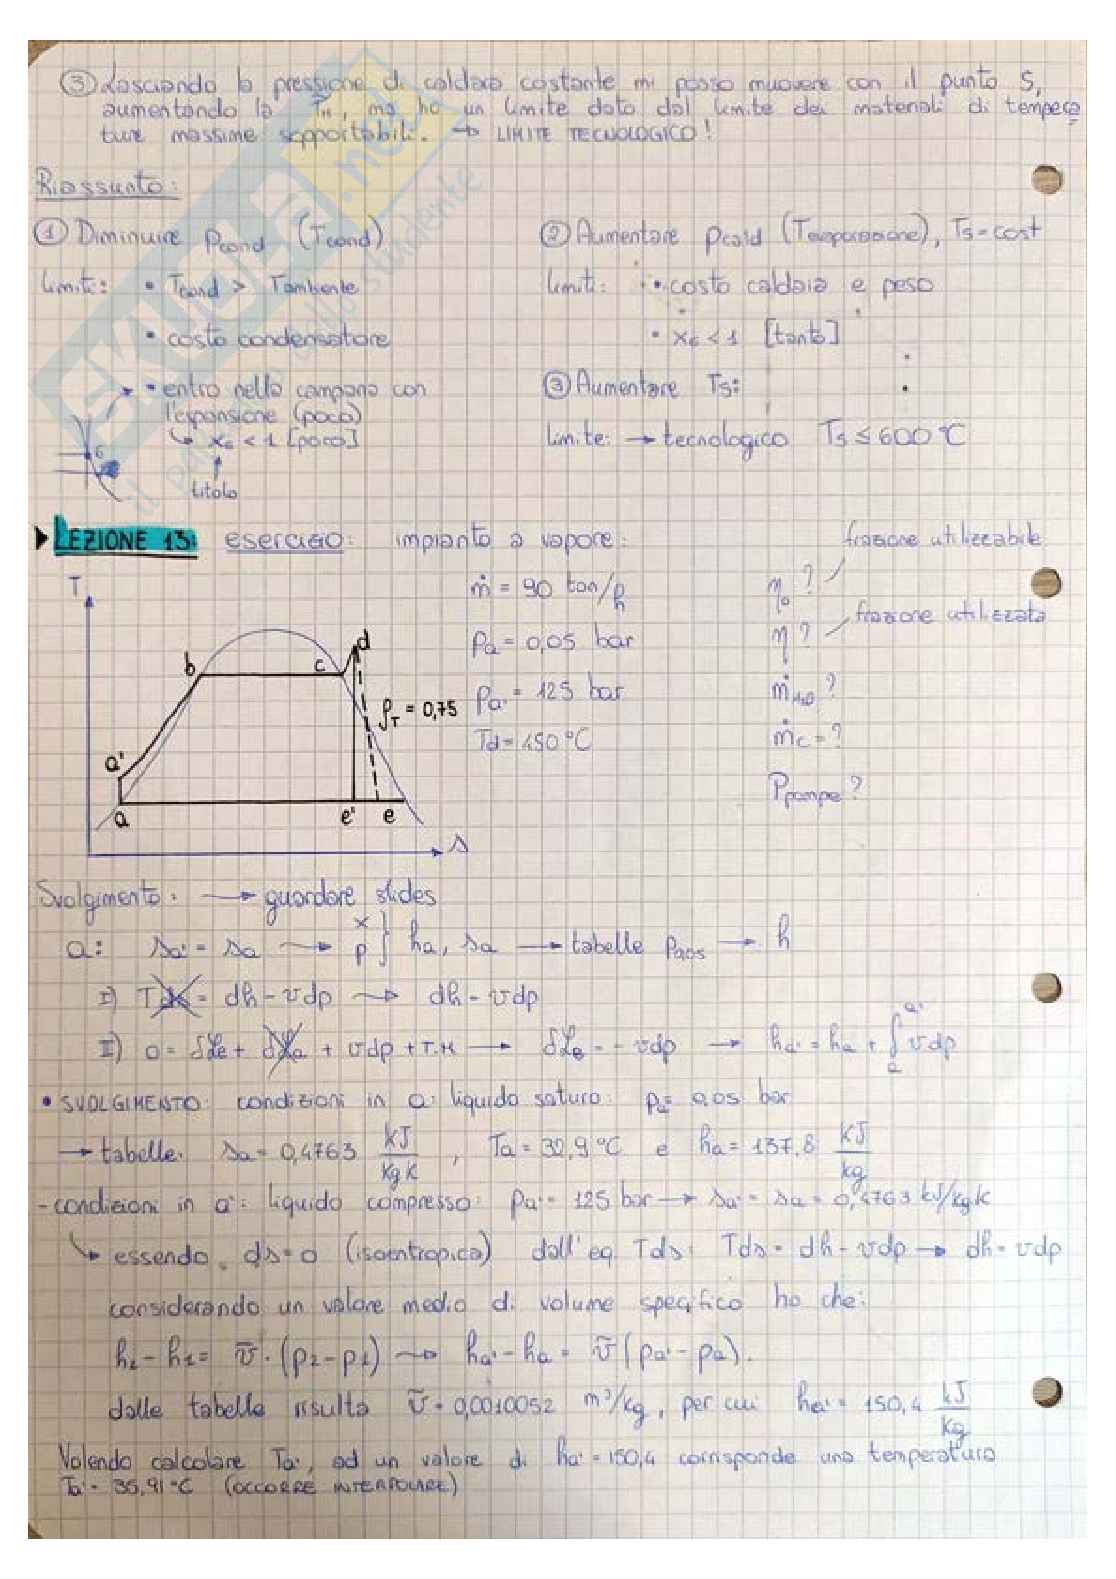 ③ Lasciando la pressione di caldaia costante mi posso muovere con il punto 5,
aumentando la Tm, ma ho un limite dato dal limite dei materiali di tempera
ture massime sopportabili. → LIMITE TECNOLOGICO!
Riassunto:
① Diminuire pcond (Tcond)
limiti: • Tcond > Tambiente
• costo condensatore
• entro nella campana con
l'espansione (poca)
↳ x6 < 1 [poco]
6
titolo
② Aumentare pcald (Tevaporazione), T5 = cost
limiti: • costo caldaia e peso
• x6 < 1 [tanto]
③ Aumentare T5:
limite: → tecnologico T5 ≤ 600 °C
LEZIONE 13: esercizio: impianto a vapore:
T
b c d
ρT = 0,75
a'
a e' e
s
ṁ = 90 ton/h
pa = 0,05 bar
pa' = 125 bar
Td = 450 °C
frazione utilizzabile
η0 ?
frazione utilizzata
η ?
ṁH2O ?
ṁc = ?
Ppompe ?
Svolgimento: → guardare slides
a: sa' = sa → x p } ha, sa → tabelle → h
I) Tds = dh - vdp → dh - vdp
II) 0 = δLe + δLa + vdp + T.M → δLe = - vdp → ha' = ha + ∫ a a' vdp
• SVOLGIMENTO: condizioni in a: liquido saturo: pa = 0,05 bar
→ tabelle: sa = 0,4763 kJ/kg K , Ta = 32,9 °C e ha = 137,8 kJ/kg
- condizioni in a': liquido compresso: pa' = 125 bar → sa' = sa = 0,4763 kJ/kg K
↳ essendo ds = 0 (isoentropica) dall'eq Tds: Tds = dh - vdp → dh = vdp
considerando un valore medio di volume specifico ho che:
h2 - h1 = v̄ · (p2 - p1) → ha' - ha = v̄ (pa' - pa).
dalle tabelle risulta v̄ = 0,0010052 m³/kg, per cui ha' = 150,4 kJ/kg
Volendo calcolare Ta', ad un valore di ha' = 150,4 corrisponde una temperatura
Ta' = 35,91 °C (OCCORRE INTERPOLARE)